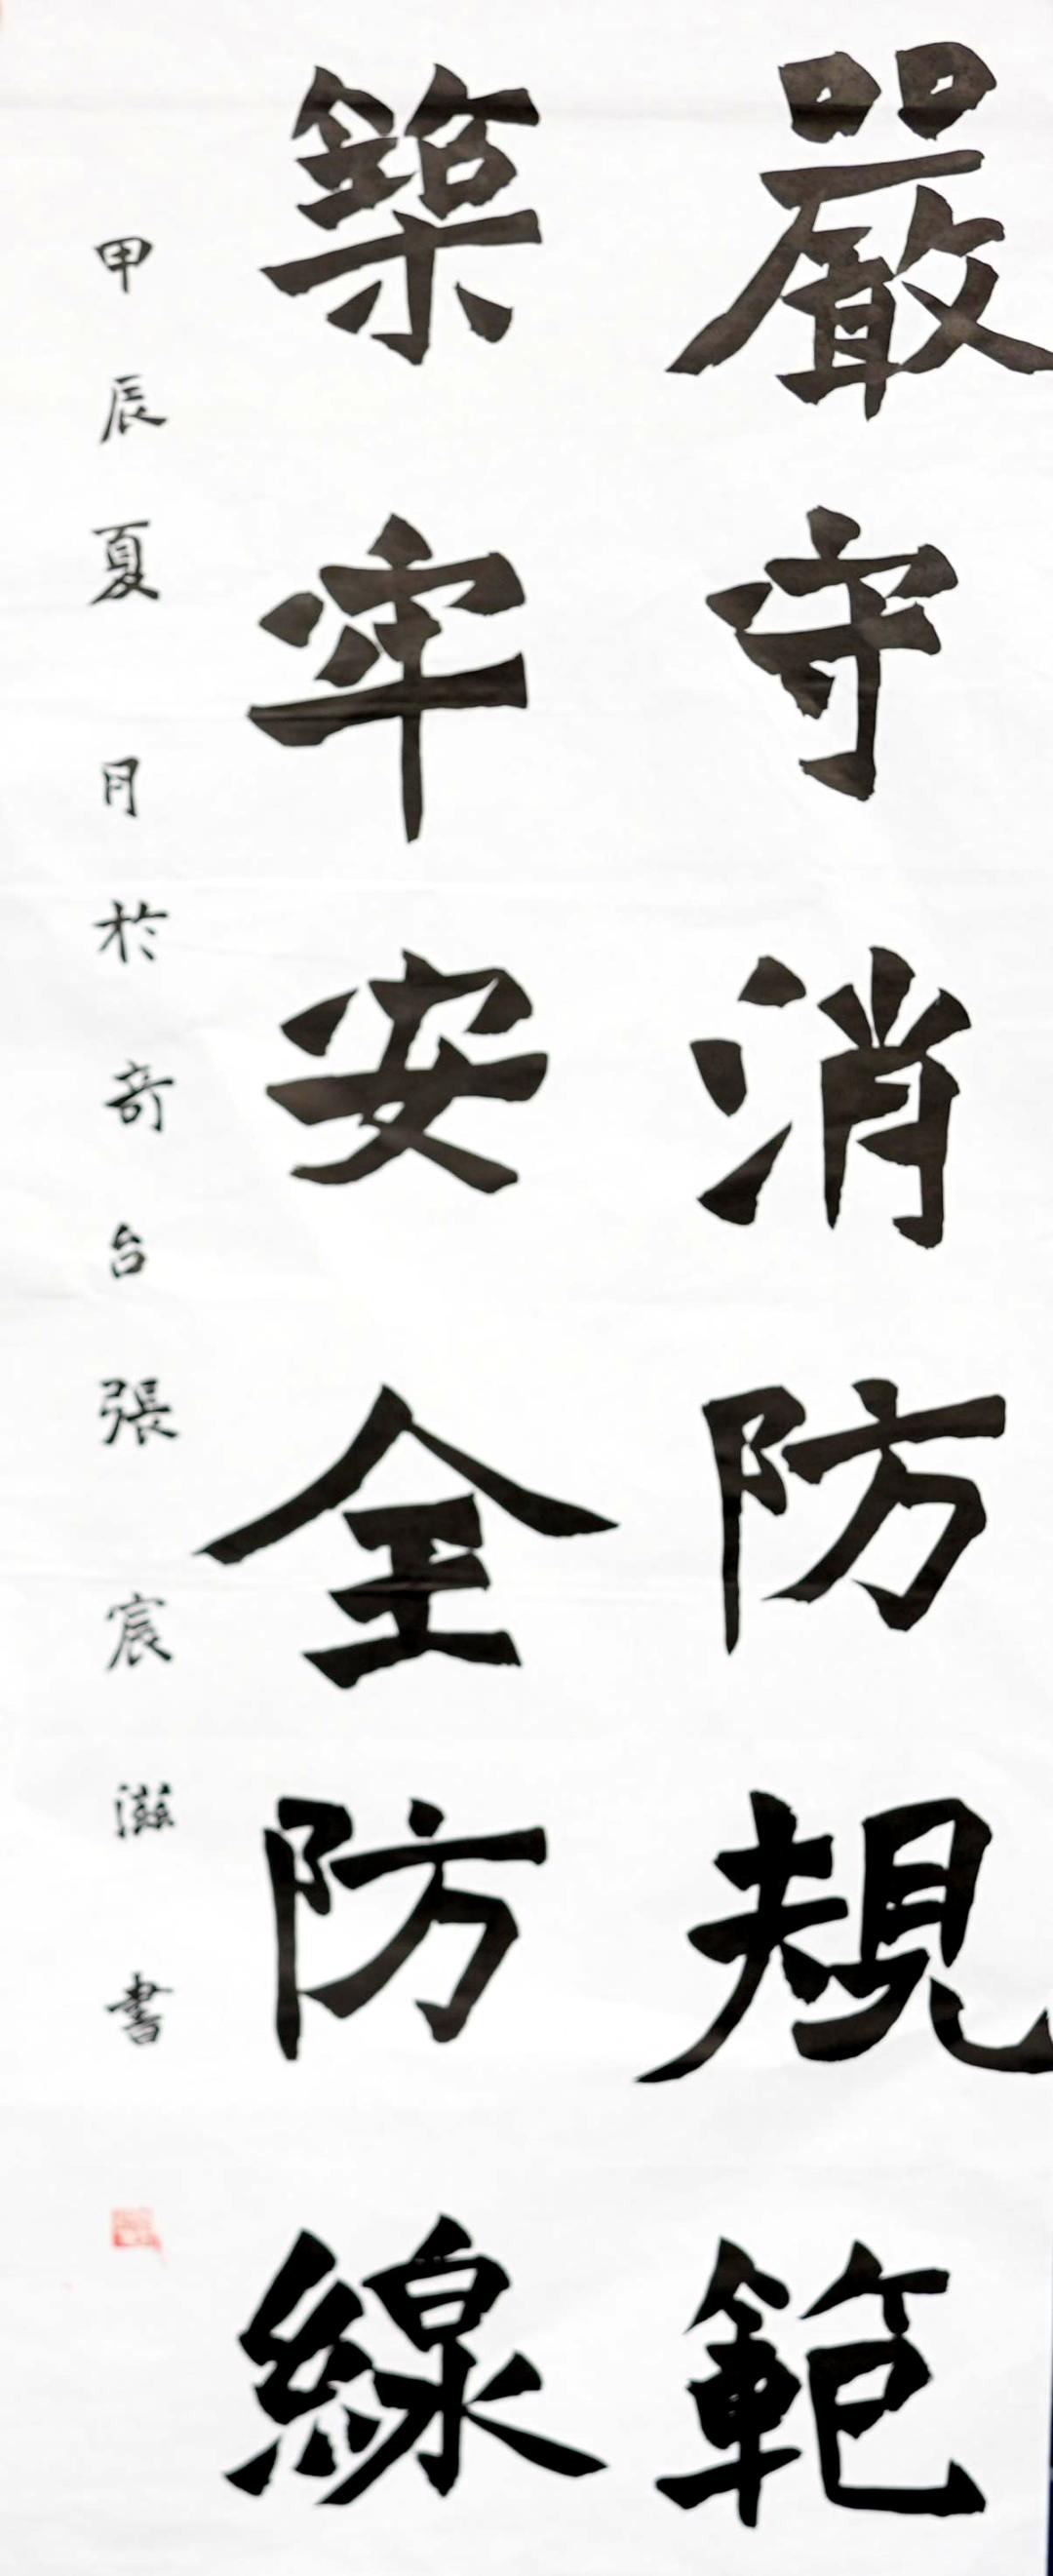 嚴守消防規範
築牢安全防線
甲辰夏月於奇台張宸滋書